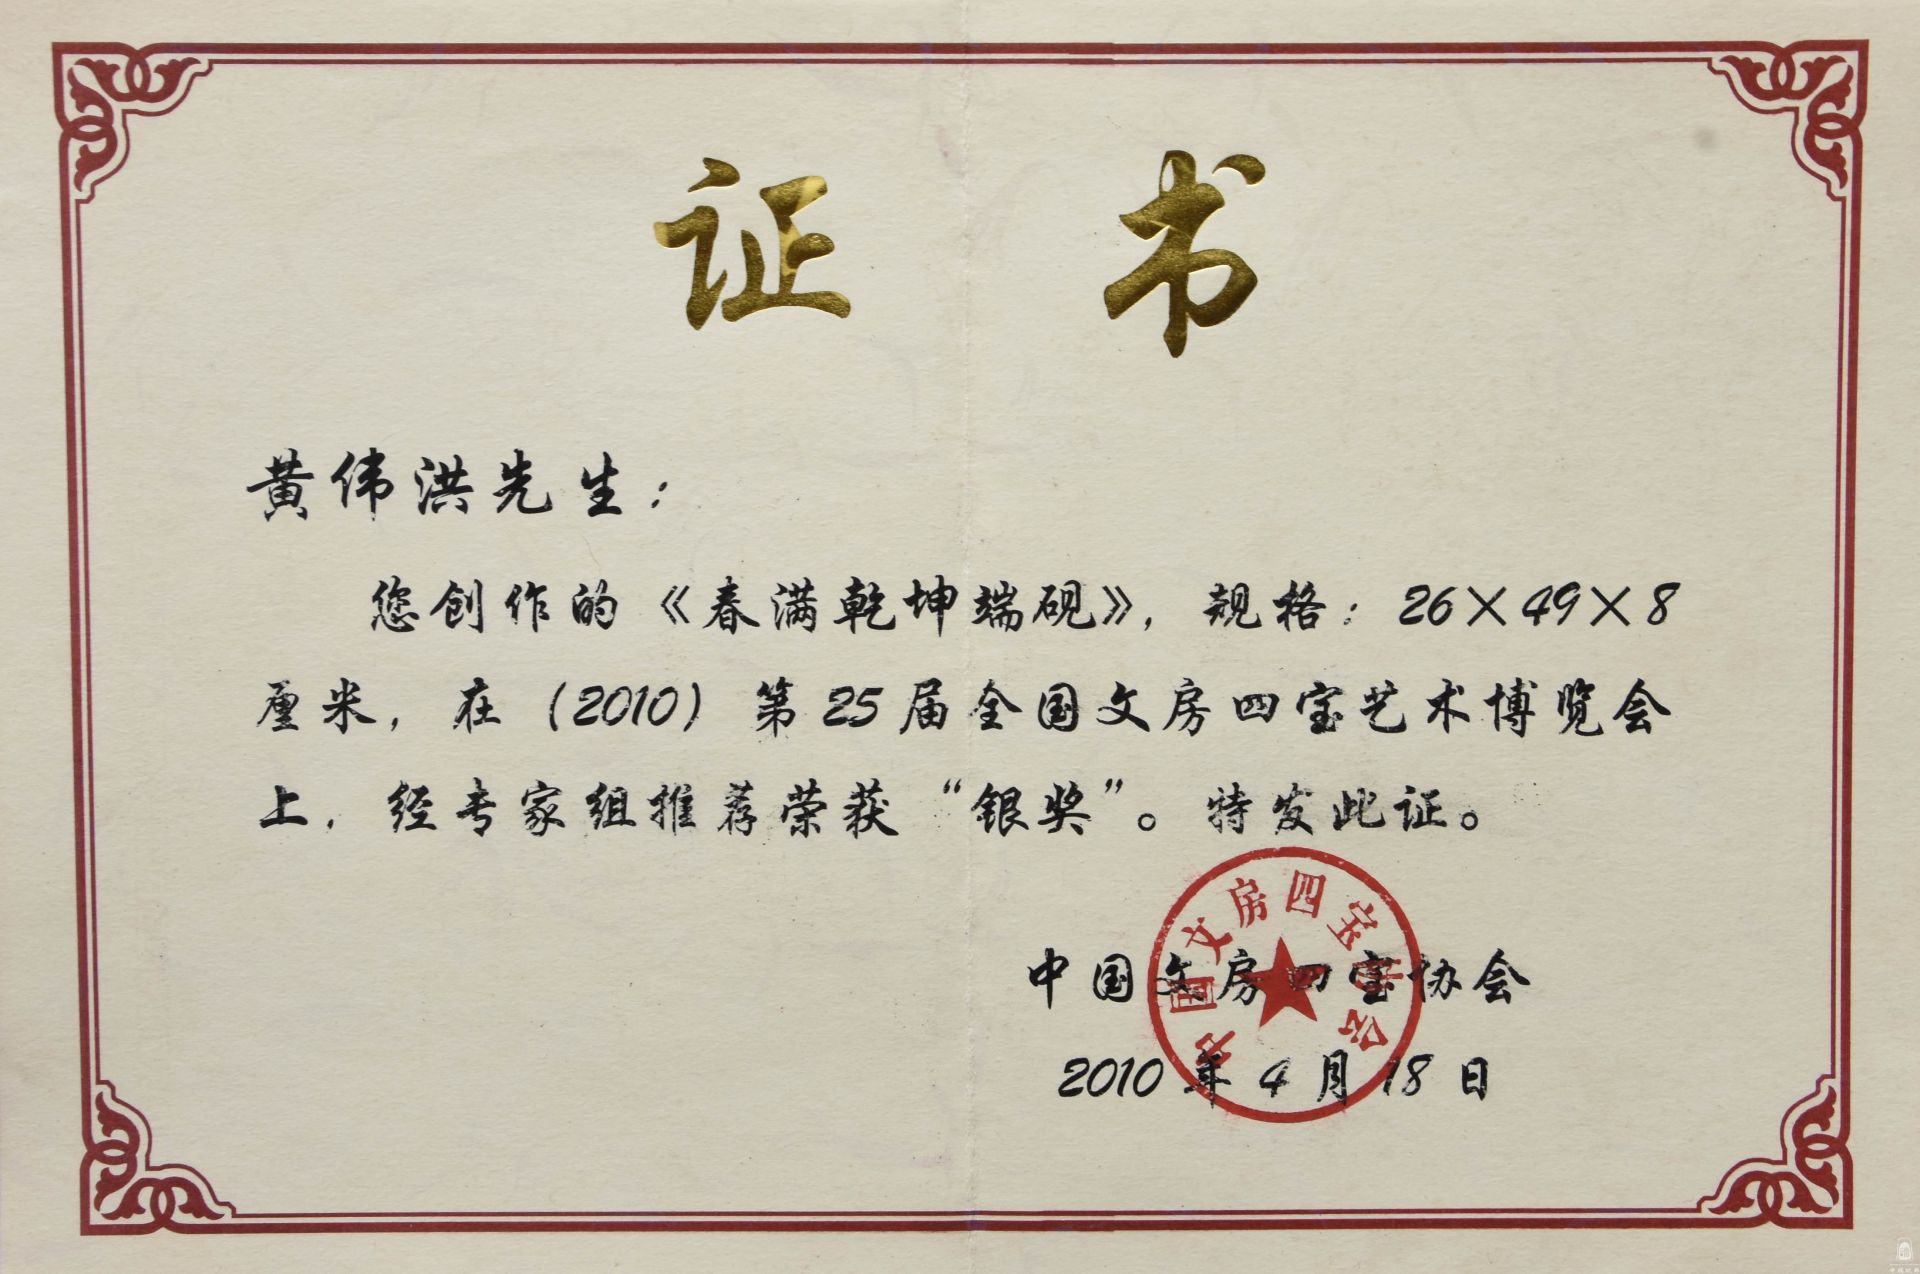 证书
黄伟洪先生：
您创作的《春满乾坤端砚》，规格：26×49×8
厘米，在（2010）第25届全国文房四宝艺术博览会
上，经专家组推荐荣获“银奖”。特发此证。
中国文房四宝协会
2010年4月18日
中国文房四宝协会